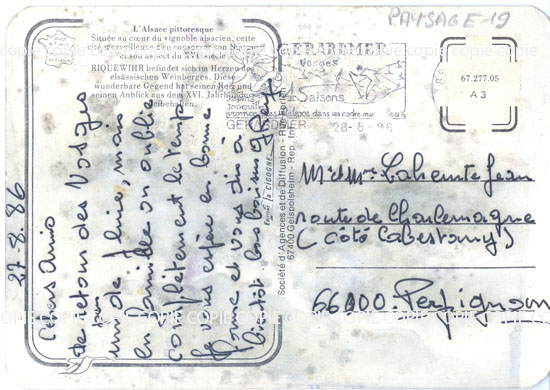 PAYSAGE-19
L'Alsace pittoresque
Située au cœur du vignoble alsacien, cette
cité merveilleuse a su conserver son
et son aspect du XVIe siècle.
RIQUEWIHR befindet sich im Herzen des
elsässischen Weinberges. Diese
wunderbare Gegend hat seinen Reiz und
seinen Anblick aus dem XVI. Jahrhundert
beibehalten.
GERARDMER
Vosges
4 Saisons
GERARDMER
28-8-86
67.277.05
A 3
27-8-86
Chers Amis
de retour des Vosges
sous
un de pluie, mais
en famille on oublie
complètement le temps
Je vous espère en bonne
forme et vous dis à
bientôt bons baisers
Editions La CIGOGNE
Société d'Agences et de Diffusion - Reproduction
67400 Geispolsheim - Rep. Int.
Mr et Mme Lahente Jean
route de Charlemagne
(côté Cabestany)
66000 Perpignan
COPIE COPIE COPIE COPIE COPIE COPIE